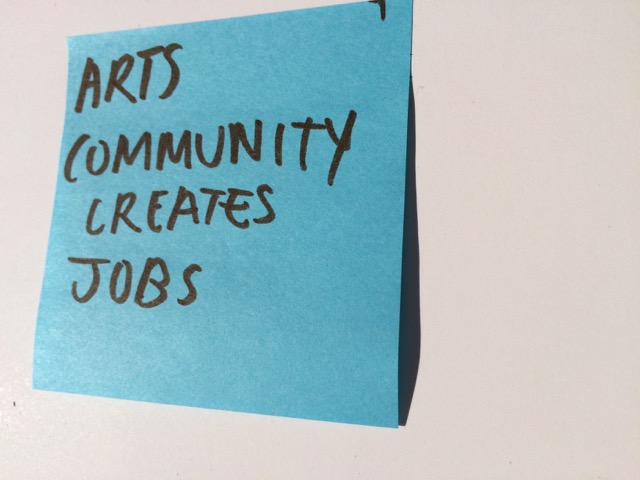 ARTS
COMMUNITY
CREATES
JOBS